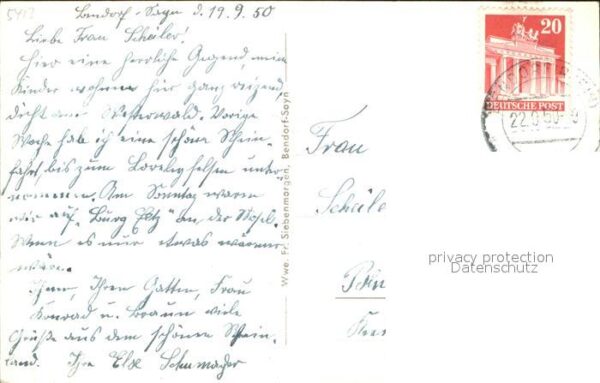 5412
Bendorf-Sayn d. 19.9.50
Liebe Frau Schäler!
Hier eine herrliche Gegend, meine
Kinder wohnen hier ganz reizend,
dicht am Westerwald. Vorige
Woche hab ich eine schöne Rhein-
fahrt bis zum Loreleyfelsen unter-
nommen. Am Sonntag waren
wir auf "Burg Eltz" an der Mosel.
Wenn es nur etwas wärmer
wäre.
Ihnen, Ihren Gatten, Frau
Konrad u. Braun viele
Grüße aus dem schönen Rhein-
land. Ihre Else Schumacher
Wwe. Fr. Siebenmorgen, Bendorf-Sayn
20
DEUTSCHE POST
22.9.50
Frau
Schäle
privacy protection
Datenschutz